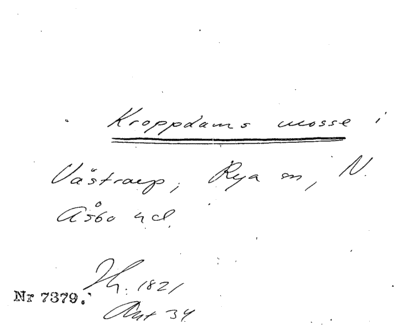 Kroppdams mosse i
Västraup, Rya sn, N.
Åsbo hd.
Nr 7379. H. 1821
Ant 34